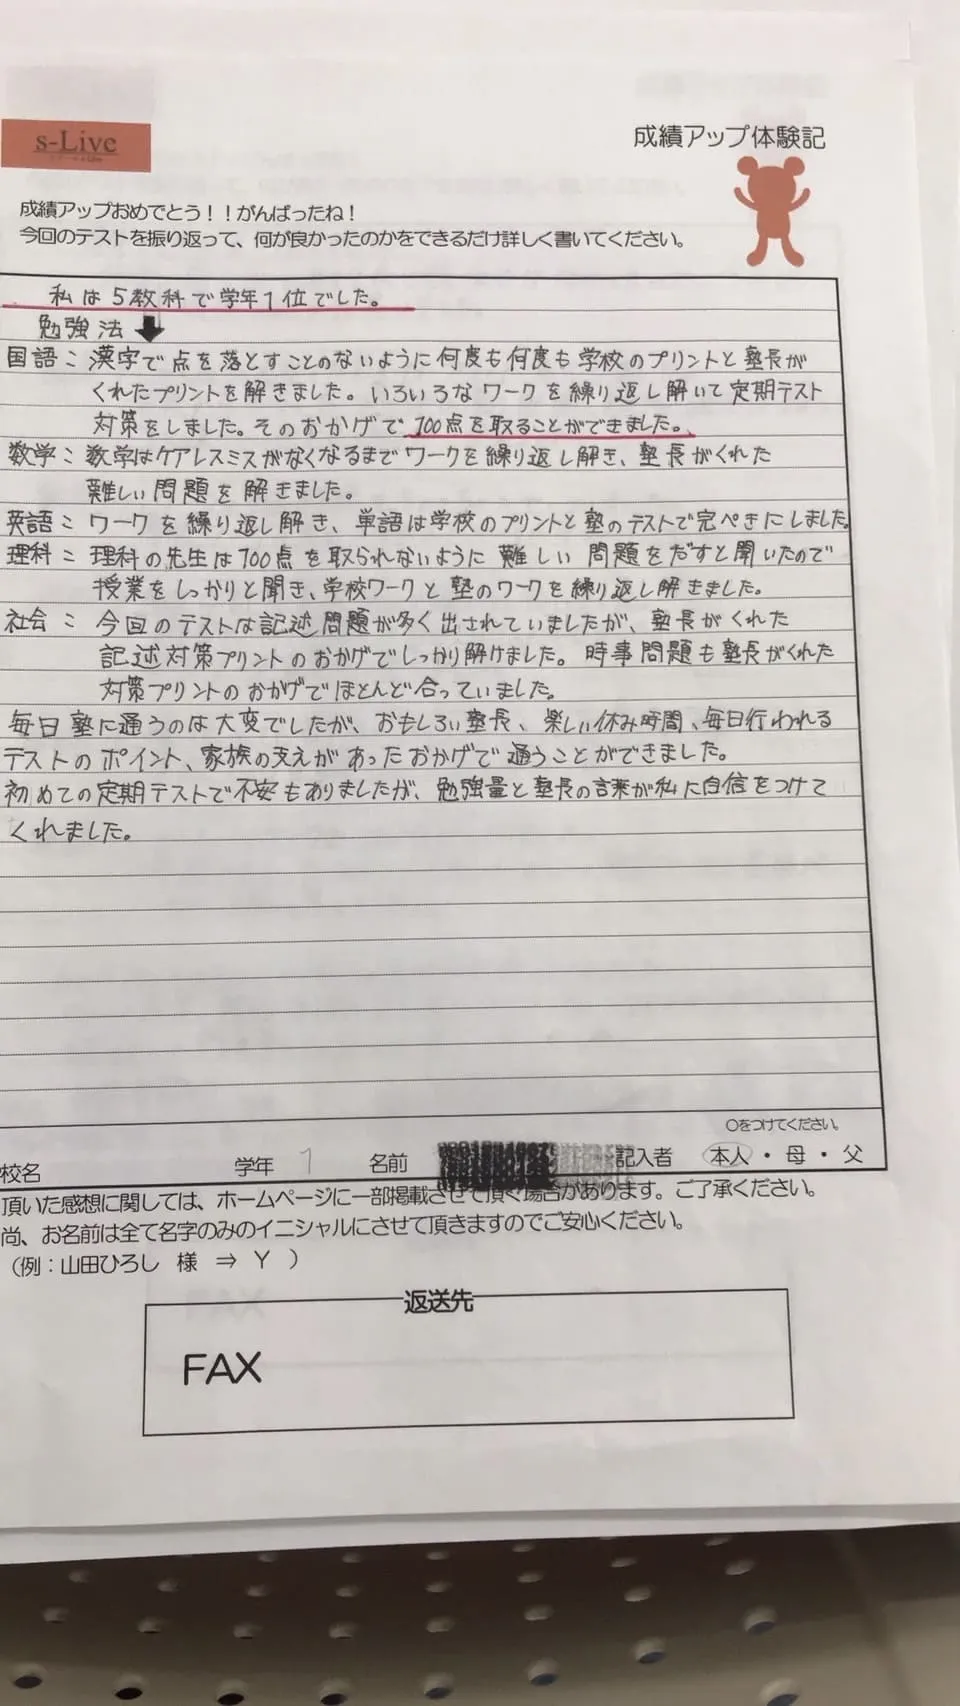 s-Live
成績アップ体験記
成績アップおめでとう！！がんばったね！
今回のテストを振り返って、何が良かったのかをできるだけ詳しく書いてください。
私は5教科で学年1位でした。
勉強法
国語：漢字で点を落とすことのないように何度も何度も学校のプリントと塾長が
くれたプリントを解きました。いろいろなワークを繰り返し解いて定期テスト
対策をしました。そのおかげで100点を取ることができました。
数学：数学はケアレスミスがなくなるまでワークを繰り返し解き、塾長がくれた
難しい問題を解きました。
英語：ワークを繰り返し解き、単語は学校のプリントと塾のテストで完ぺきにしました
理科：理科の先生は100点を取られないように難しい問題をだすと聞いたので
授業をしっかりと聞き、学校ワークと塾のワークを繰り返し解きました。
社会：今回のテストは記述問題が多く出されていましたが、塾長がくれた
記述対策プリントのおかげでしっかり解けました。時事問題も塾長がくれた
対策プリントのおかげでほとんど合っていました。
毎日塾に通うのは大変でしたが、おもしろい塾長、楽しい休み時間、毎日行われる
テストのポイント、家族の支えがあったおかげで通うことができました。
初めての定期テストで不安もありましたが、勉強量と塾長の言葉が私に自信をつけて
くれました。
〇をつけてください。
校名 学年 1 名前 記入者 本人・母・父
頂いた感想に関しては、ホームページに一部掲載させて頂く場合があります。ご了承ください。
尚、お名前は全て名字のみのイニシャルにさせて頂きますのでご安心ください。
（例：山田ひろし 様 ⇒ Y ）
返送先
FAX